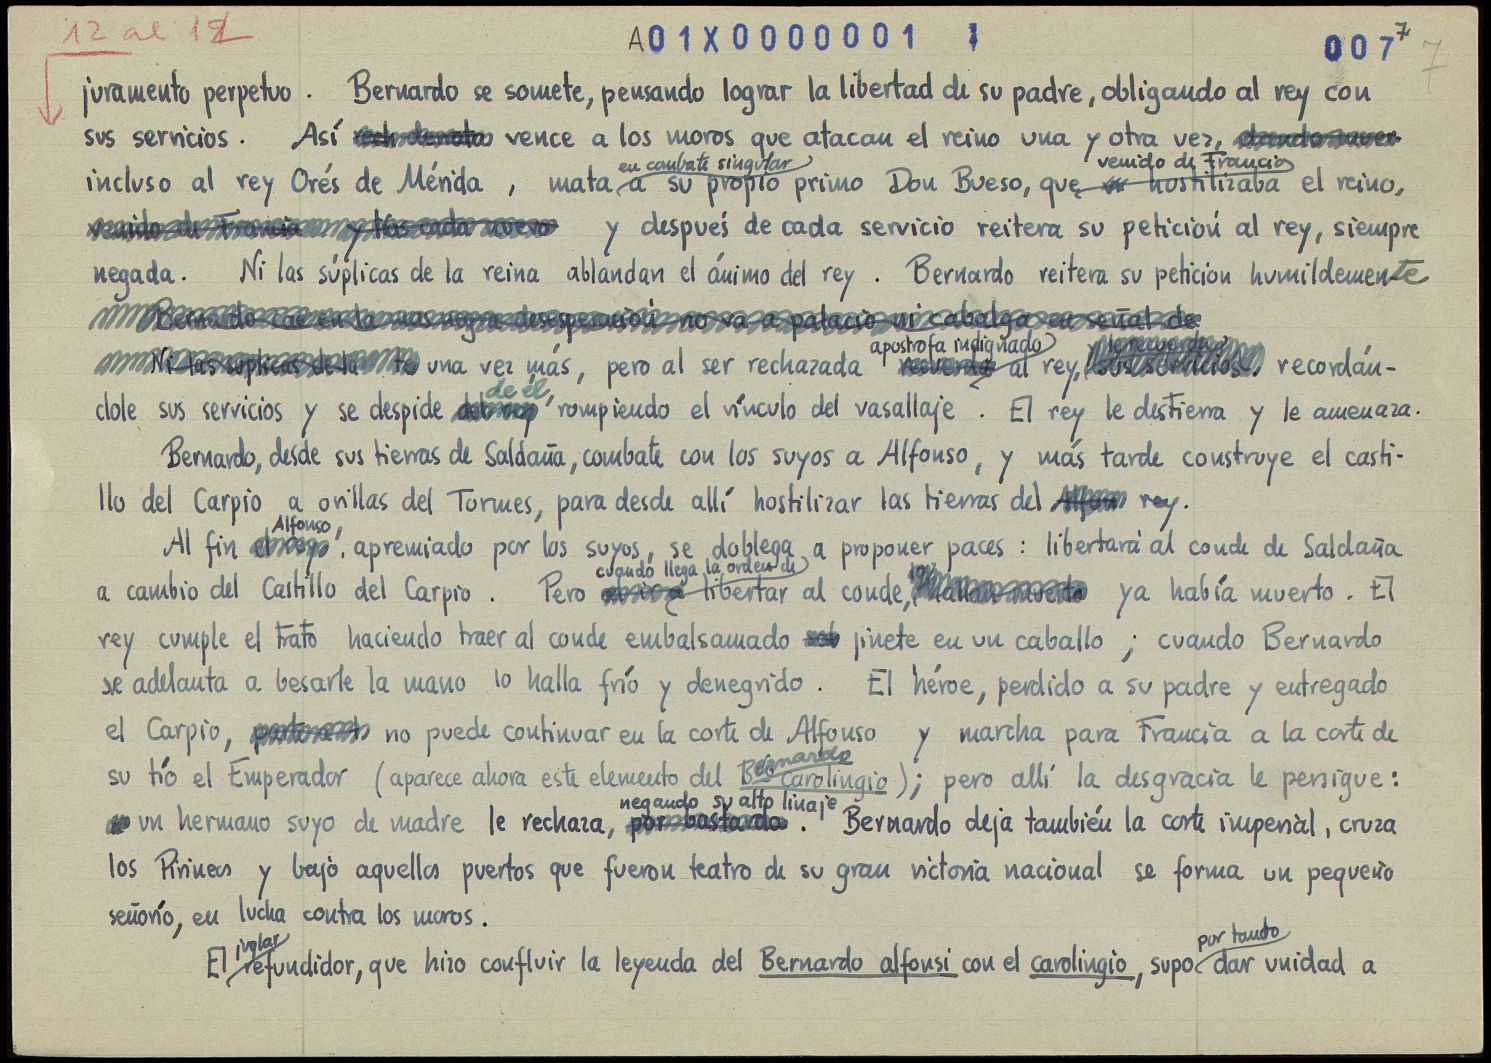 12 al 12
A01X0000000 1 7
007 7 7
juramento perpetuo. Bernardo se somete, pensando lograr la libertad de su padre, obligando al rey con
sus servicios. Así vence a los moros que atacan el reino una y otra vez,
en combate singular venido de Francia
incluso al rey Orés de Mérida, mata a su propio primo Don Bueso, que hostilizaba el reino,
venido de Francia y tras cada nuevo y después de cada servicio reitera su petición al rey, siempre
negada. Ni las súplicas de la reina ablandan el ánimo del rey. Bernardo reitera su petición humildemente
Bernardo cae en la mas negra desesperación no va a palacio ni cabalga en señal de
apostrofa indignado
Ni las suplicas de la te una vez más, pero al ser rechazada recuerda al rey, sus servicios, recordán-
de él,
dole sus servicios y se despide del rey rompiendo el vínculo del vasallaje. El rey le destierra y le amenaza.
Bernardo, desde sus tierras de Saldaña, combate con los suyos a Alfonso, y más tarde construye el casti-
llo del Carpio a orillas del Tormes, para desde allí hostilizar las tierras del Alfon rey.
Alfonso,
Al fin el rey, apremiado por los suyos, se doblega a proponer paces: libertará al conde de Saldaña
cuando llega la orden de
a cambio del Castillo del Carpio. Pero libertar al conde, ya había muerto. El
rey cumple el trato haciendo traer al conde embalsamado sob jinete en un caballo; cuando Bernardo
se adelanta a besarle la mano lo halla frío y denegrido. El héroe, perdido a su padre y entregado
el Carpio, no puede continuar en la corte de Alfonso y marcha para Francia a la corte de
Bernardo
su tío el Emperador (aparece ahora este elemento del Bº carolingio); pero allí la desgracia le persigue:
negando su alto linaje
un hermano suyo de madre le rechaza, por bastardo. Bernardo deja también la corte imperial, cruza
los Pirineos y bajo aquellos puertos que fueron teatro de su gran victoria nacional se forma un pequeño
señorío, en lucha contra los moros.
juglar por tanto
El refundidor, que hizo confluir la leyenda del Bernardo alfonsi con el carolingio, supo dar unidad a